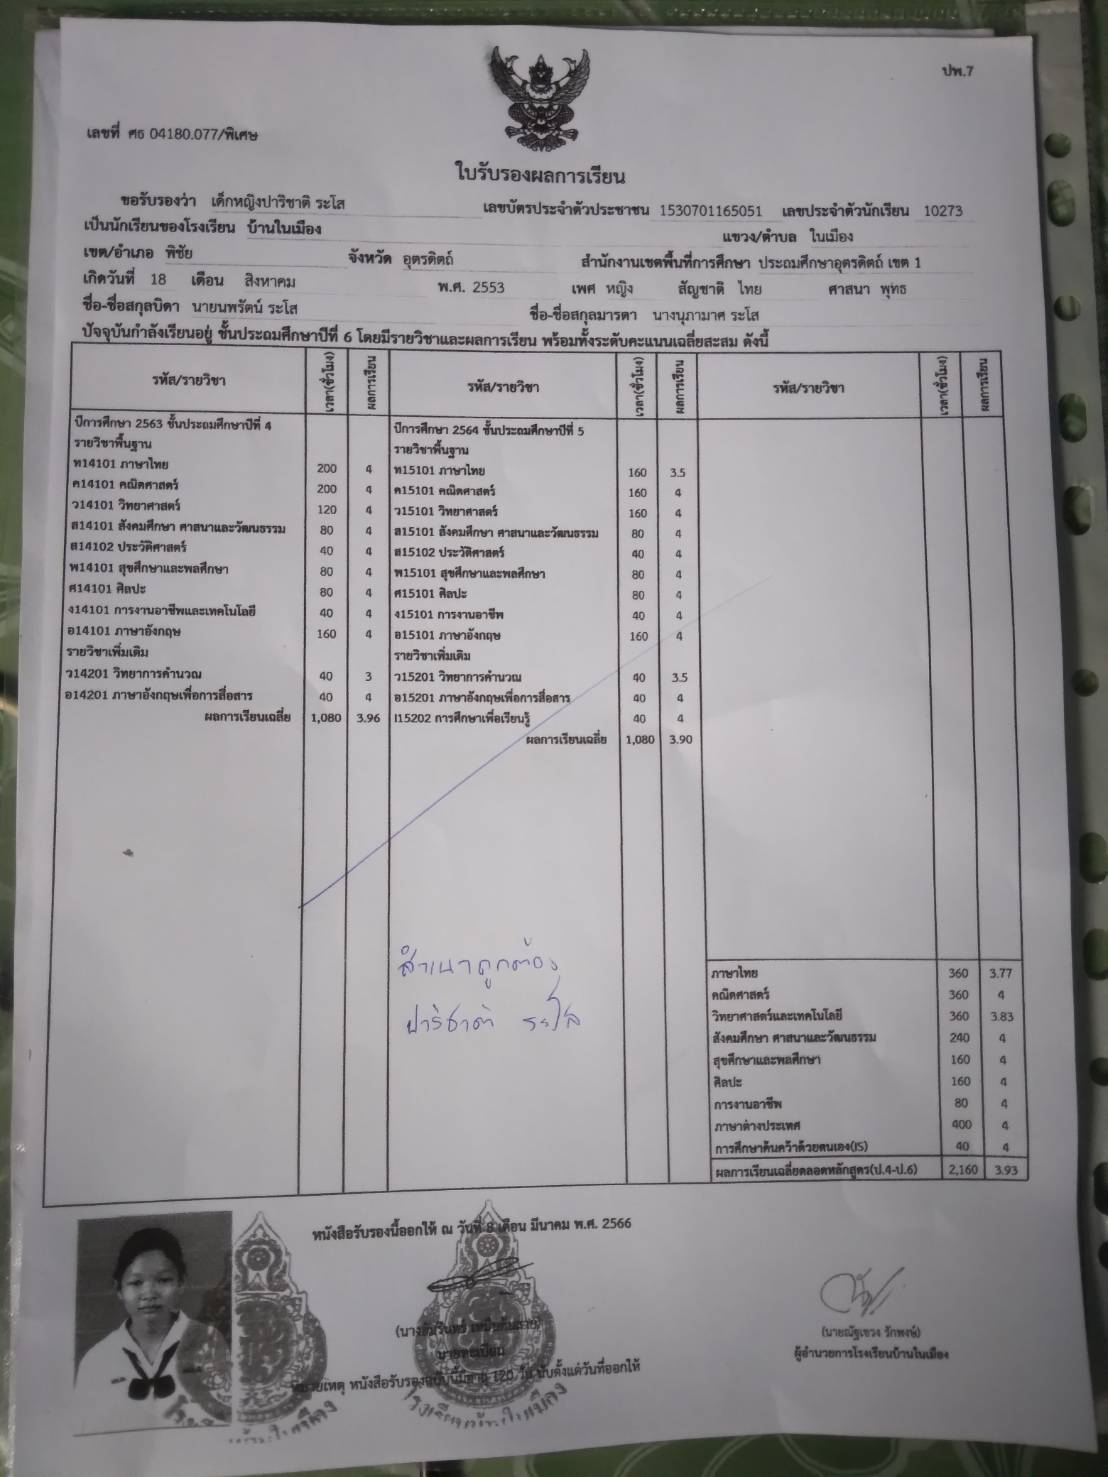 ปพ.7
เลขที่ ศธ 04180.077/พิเศษ
ใบรับรองผลการเรียน
ขอรับรองว่า เด็กหญิงปาริชาติ ระโส เลขบัตรประจำตัวประชาชน 1530701165051 เลขประจำตัวนักเรียน 10273
เป็นนักเรียนของโรงเรียน บ้านในเมือง แขวง/ตำบล ในเมือง
เขต/อำเภอ พิชัย จังหวัด อุตรดิตถ์ สำนักงานเขตพื้นที่การศึกษา ประถมศึกษาอุตรดิตถ์ เขต 1
เกิดวันที่ 18 เดือน สิงหาคม พ.ศ. 2553 เพศ หญิง สัญชาติ ไทย ศาสนา พุทธ
ชื่อ-ชื่อสกุลบิดา นายนพรัตน์ ระโส ชื่อ-ชื่อสกุลมารดา นางนุภามาศ ระโส
ปัจจุบันกำลังเรียนอยู่ ชั้นประถมศึกษาปีที่ 6 โดยมีรายวิชาและผลการเรียน พร้อมทั้งระดับคะแนนเฉลี่ยสะสม ดังนี้
รหัส/รายวิชา เวลา(ชั่วโมง) ผลการเรียน
ปีการศึกษา 2563 ชั้นประถมศึกษาปีที่ 4
รายวิชาพื้นฐาน
ท14101 ภาษาไทย 200 4
ค14101 คณิตศาสตร์ 200 4
ว14101 วิทยาศาสตร์ 120 4
ส14101 สังคมศึกษา ศาสนาและวัฒนธรรม 80 4
ส14102 ประวัติศาสตร์ 40 4
พ14101 สุขศึกษาและพลศึกษา 80 4
ศ14101 ศิลปะ 80 4
ง14101 การงานอาชีพและเทคโนโลยี 40 4
อ14101 ภาษาอังกฤษ 160 4
รายวิชาเพิ่มเติม
ว14201 วิทยาการคำนวณ 40 3
อ14201 ภาษาอังกฤษเพื่อการสื่อสาร 40 4
ผลการเรียนเฉลี่ย 1,080 3.96
รหัส/รายวิชา เวลา(ชั่วโมง) ผลการเรียน
ปีการศึกษา 2564 ชั้นประถมศึกษาปีที่ 5
รายวิชาพื้นฐาน
ท15101 ภาษาไทย 160 3.5
ค15101 คณิตศาสตร์ 160 4
ว15101 วิทยาศาสตร์ 160 4
ส15101 สังคมศึกษา ศาสนาและวัฒนธรรม 80 4
ส15102 ประวัติศาสตร์ 40 4
พ15101 สุขศึกษาและพลศึกษา 80 4
ศ15101 ศิลปะ 80 4
ง15101 การงานอาชีพ 40 4
อ15101 ภาษาอังกฤษ 160 4
รายวิชาเพิ่มเติม
ว15201 วิทยาการคำนวณ 40 3.5
อ15201 ภาษาอังกฤษเพื่อการสื่อสาร 40 4
I15202 การศึกษาเพื่อเรียนรู้ 40 4
ผลการเรียนเฉลี่ย 1,080 3.90
สำเนาถูกต้อง
ปาริชาติ ระโส
รหัส/รายวิชา เวลา(ชั่วโมง) ผลการเรียน
ภาษาไทย 360 3.77
คณิตศาสตร์ 360 4
วิทยาศาสตร์และเทคโนโลยี 360 3.83
สังคมศึกษา ศาสนาและวัฒนธรรม 240 4
สุขศึกษาและพลศึกษา 160 4
ศิลปะ 160 4
การงานอาชีพ 80 4
ภาษาต่างประเทศ 400 4
การศึกษาค้นคว้าด้วยตนเอง(IS) 40 4
ผลการเรียนเฉลี่ยตลอดหลักสูตร(ป.4-ป.6) 2,160 3.93
หนังสือรับรองนี้ออกให้ ณ วันที่ 8 เดือน มีนาคม พ.ศ. 2566
นายทะเบียน
(นายณัฐเขวง รักพงษ์)
ผู้อำนวยการโรงเรียนบ้านในเมือง
หมายเหตุ หนังสือรับรองฉบับนี้มีอายุ 120 วัน นับตั้งแต่วันที่ออกให้
โรงเรียนบ้านในเมือง